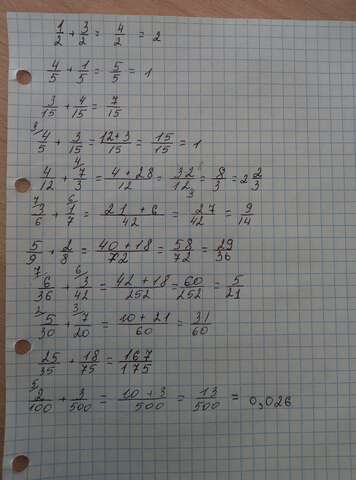 1/2 + 3/2 = 4/2 = 2
4/5 + 1/5 = 5/5 = 1
3/15 + 4/15 = 7/15
3/ 4/5 + 3/15 = 12+3/15 = 15/15 = 1
4/12 + 4/ 7/3 = 4+28/12 = 32/12 = 8/3 = 2 2/3
7/ 3/6 + 6/ 1/7 = 21+6/42 = 27/42 = 9/14
5/9 + 2/8 = 40+18/72 = 58/72 = 29/36
7/ 6/36 + 6/ 3/42 = 42+18/252 = 60/252 = 5/21
2/ 5/30 + 3/ 7/20 = 10+21/60 = 31/60
25/35 + 18/75 = 167/175
5/ 2/100 + 3/500 = 10+3/500 = 13/500 = 0,026